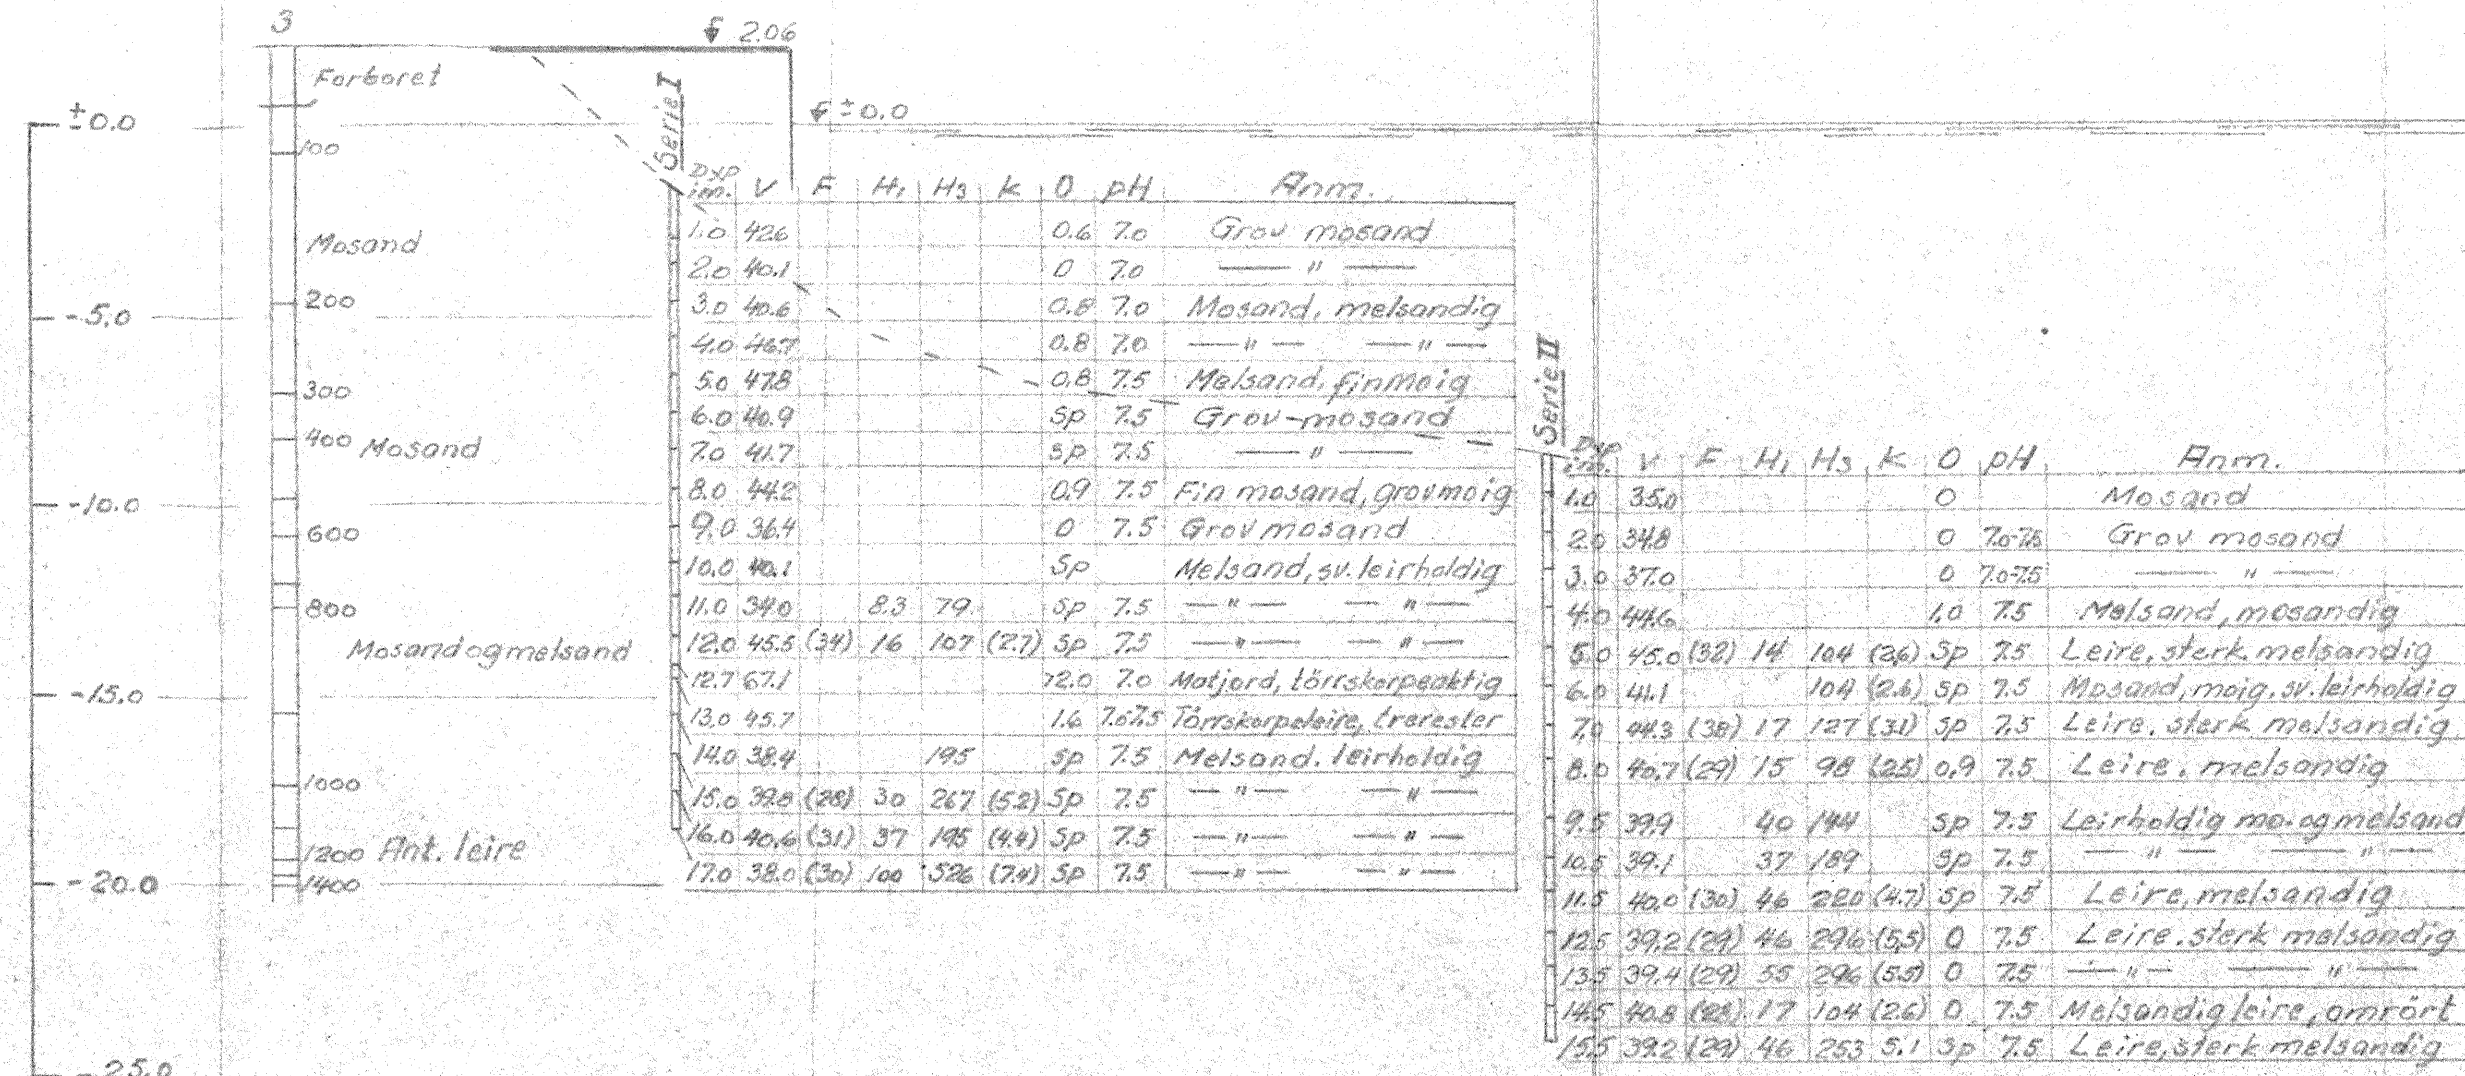 3
2.06
Forboret
± 0.0
±0.0
100
Mosand
200
-5.0
300
400 Mosand
-10.0
600
800
Mosand og melsand
-15.0
1000
1200 Ant. leire
1400
-20.0
-25.0
Serie I
Dyp i m. V F H1 H3 k O pH Anm.
1.0 42.6 0.6 7.0 Grov mosand
2.0 40.1 0 7.0 — " —
3.0 40.6 0.8 7.0 Mosand, melsandig
4.0 46.7 0.8 7.0 — " — — " —
5.0 47.8 0.8 7.5 Melsand, finmoig
6.0 40.9 Sp 7.5 Grov-mosand
7.0 41.7 Sp 7.5 — " —
8.0 44.2 0.9 7.5 Fin mosand, grovmoig
9.0 36.4 0 7.5 Grov mosand
10.0 40.1 Sp Melsand, sv. leirholdig
11.0 34.0 8.3 79 Sp 7.5 — " — — " —
12.0 45.5 (34) 16 107 (2.7) Sp 7.5 — " — — " —
12.7 67.1 >2.0 7.0 Matjord, törrskorpeaktig
13.0 45.7 1.6 7.0-7.5 Törrskorpeleire, trerester
14.0 38.4 195 Sp 7.5 Melsand. leirholdig
15.0 39.8 (28) 30 267 (5.2) Sp 7.5 — " — — " —
16.0 40.6 (31) 37 195 (4.4) Sp 7.5 — " — — " —
17.0 38.0 (30) 100 526 (7.4) Sp 7.5 — " — — " —
Serie II
Dyp i m. V F H1 H3 K O pH Anm.
1.0 35.0 0 Mosand
2.0 34.8 0 7.0-7.5 Grov mosand
3.0 37.0 0 7.0-7.5 — " —
4.0 44.6 1.0 7.5 Melsand, mosandig
5.0 45.0 (32) 14 104 (2.6) Sp 7.5 Leire, sterk melsandig
6.0 41.1 104 (2.6) Sp 7.5 Mosand, moig, sv. leirholdig
7.0 44.3 (38) 17 127 (3.1) Sp 7.5 Leire. sterk melsandig
8.0 40.7 (29) 15 98 (2.5) 0.9 7.5 Leire. melsandig
9.5 39.9 40 144 Sp 7.5 Leirholdig mo-og melsand
10.5 39.1 37 189 Sp 7.5 — " — — " —
11.5 40.0 (30) 46 220 (4.7) Sp 7.5 Leire, melsandig
12.5 39.2 (29) 46 296 (5.5) 0 7.5 Leire. sterk melsandig
13.5 39.4 (29) 55 296 (5.5) 0 7.5 — " — — " —
14.5 40.8 17 104 (2.6) 0 7.5 Melsandig leire, omrört
15.5 39.2 (29) 46 253 5.1 Sp 7.5 Leire, sterk melsandig